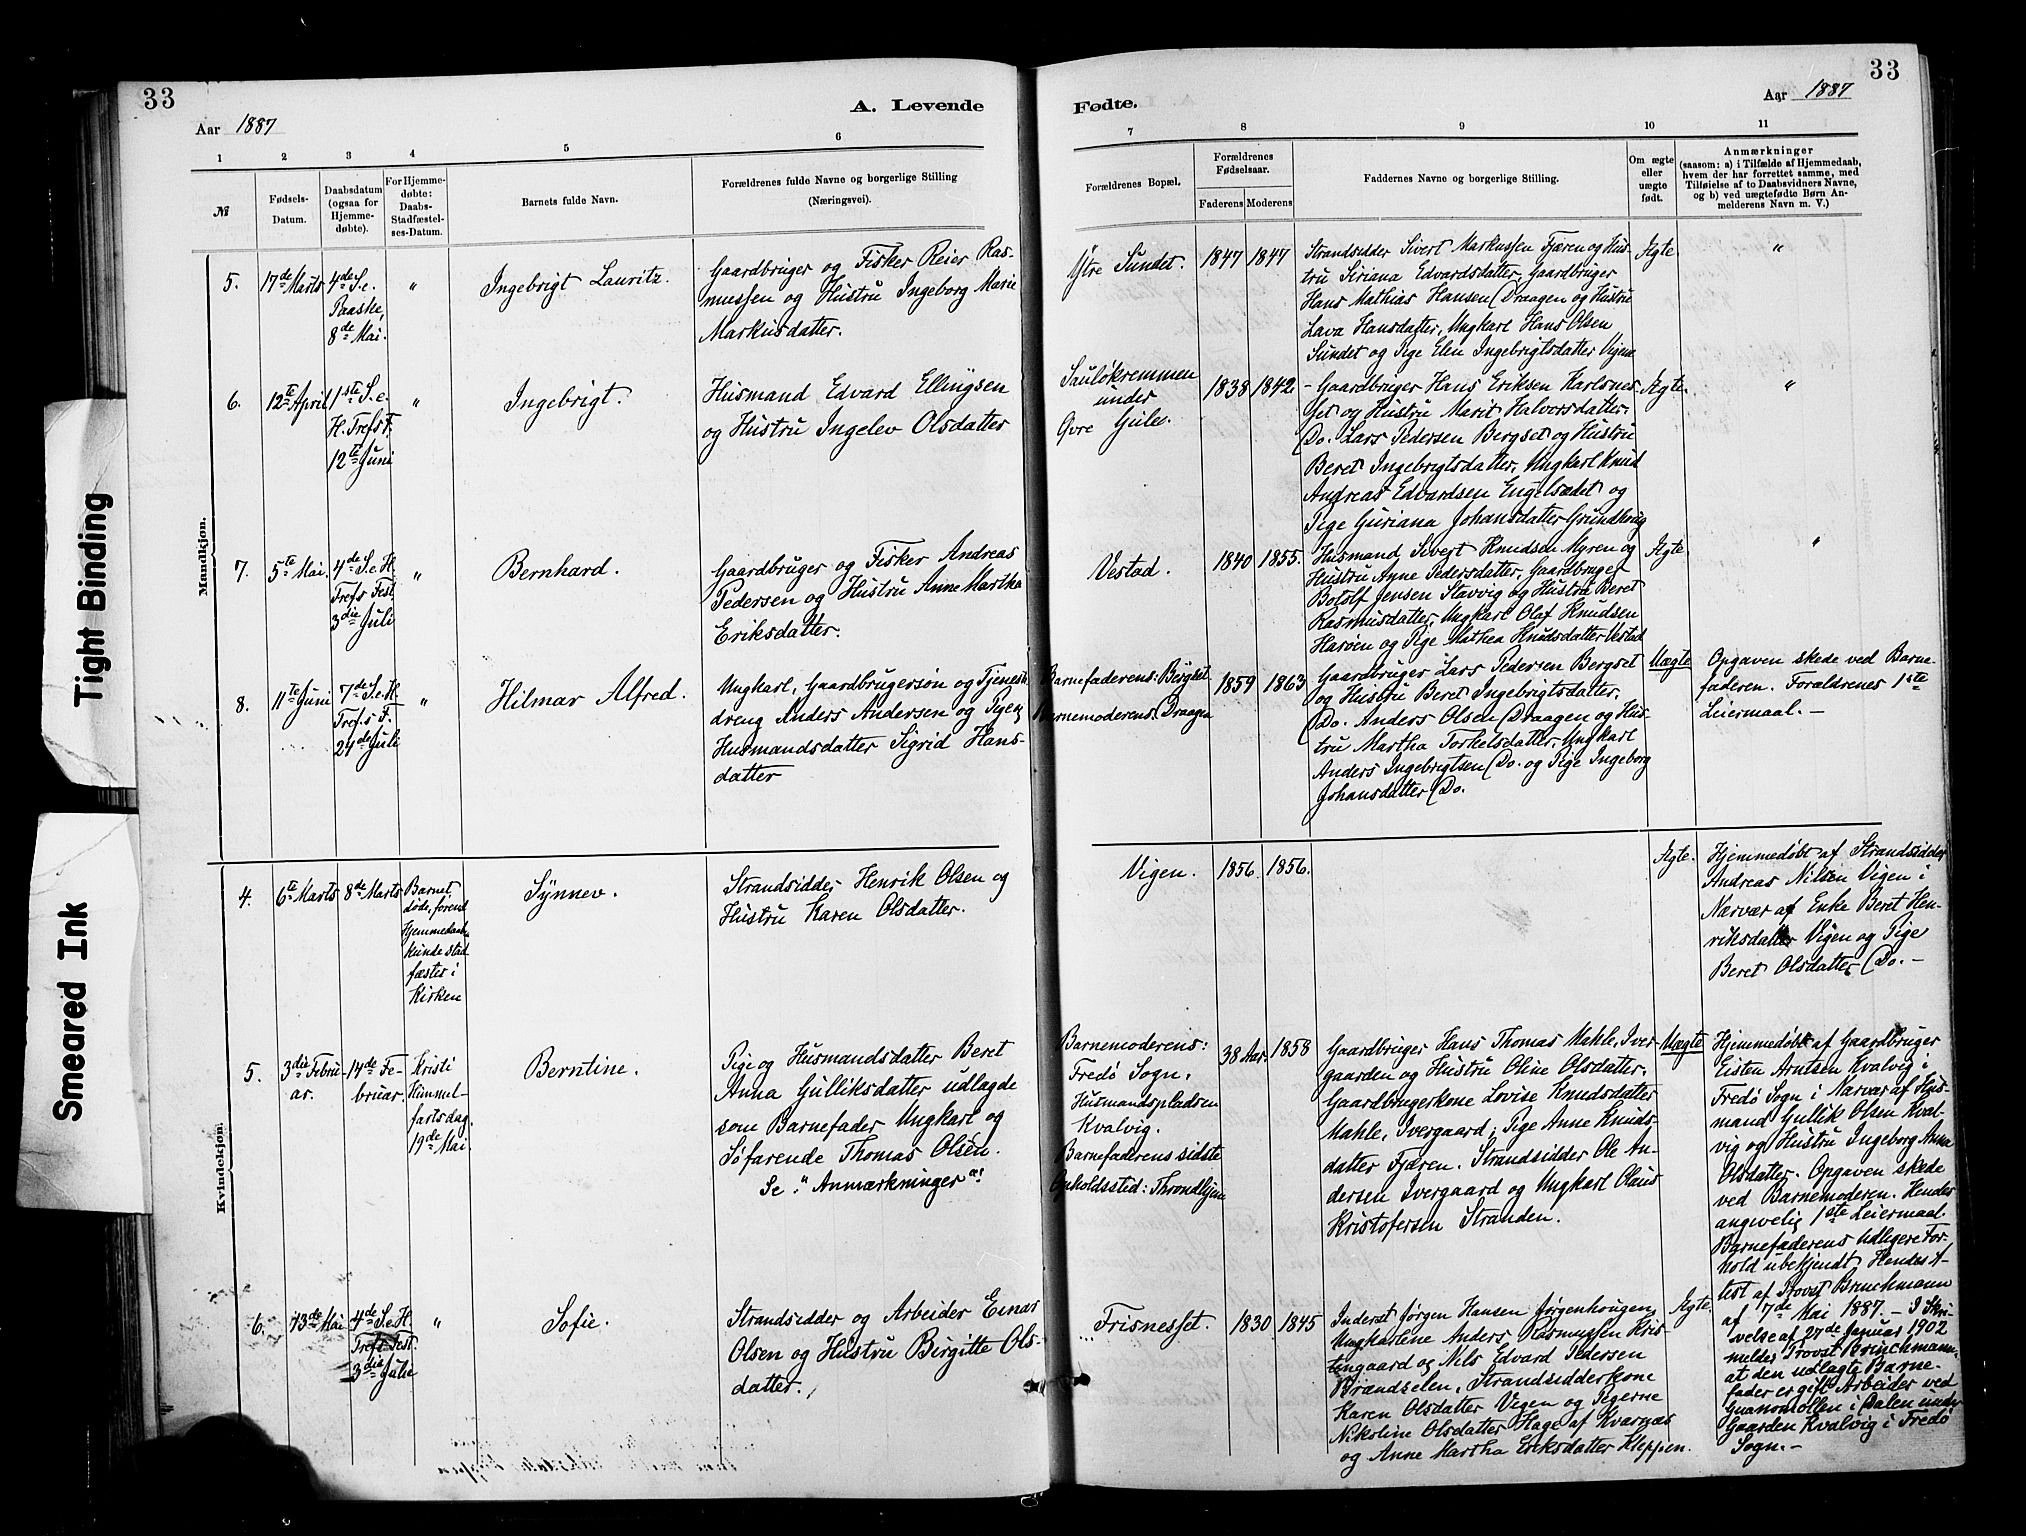 33
A. Levende
Aar 1887
1
2
3
4
5
6
№
Fødsels-
Datum.
Daabsdatum
(ogsaa for
Hjemme-
døbte).
For Hjemme-
døbte:
Daabs-
Stadfæstel-
ses-Datum.
Barnets fulde Navn.
Forældrenes fulde Navne og borgerlige Stilling
(Næringsvei).
Mandkjøn.
5.
17de Marts
4de S. e.
Paaske,
8de Mai.
"
Ingebrigt Lauritz.
Gaardbruger og Fisker Reier Ras-
mussen og Hustru Ingeborg Marie
Markusdatter.
6.
12te April
1ste S. e.
H. Trefs F.
12te Juni
"
Ingebrigt.
Husmand Edvard Ellingsen
og Hustru Ingelev Olsdatter
7.
5te Mai.
4de S. e H.
Trefs Fest
3die Juli
"
Bernhard.
Gaardbruger og Fisker Andreas
Pedersen og Hustru Anne Martha
Eriksdatter.
8.
11te Juni
7de S. e H.
Trefs F.
24de Juli
"
Hilmar Alfred.
Ungkarl, Gaardbrugersøn og Tjeneste
dreng Anders Andersen og Pigen
Husmandsdatter Sigrid Hans-
datter
Kvindekjøn.
4.
6te Marts
8de Marts
Barnet
døde, førend
Hjemmedaab
kunde stad
fæstes i
Kirken
Synnev.
Strandsidder Henrik Olsen og
Hustru Karen Olsdatter.
5.
3die Febru-
ar.
14de Fe-
bruar.
Kristi
Himmel-
fartsdag.
19de Mai.
Berntine.
Pige og Husmandsdatter Beret
Anna Gulliksdatter udlagde
som Barnefader Ungkarl og
Søfarende Thomas Olsen.
Se "Anmærkninger"
6.
13de Mai
4de S. e H.
Trefs Fest.
3die Juli
"
Sofie.
Strandsidder og Arbeider Einar
Olsen og Hustru Birgitte Ols-
datter.
33
Fødte.
Aar 1887
7
8
9
10
11
Forældrenes Bopæl.
Forældrenes
Fødselsaar.
Faderens
Moderens
Faddernes Navne og borgerlige Stilling.
Om ægte
eller
uægte
født.
Anmærkninger
(saasom: a) i Tilfælde af Hjemmedaab,
hvem der har forrettet samme, med
Tilføielse af to Daabsvidners Navne,
og b) ved uægtefødte Børn An-
melderens Navn m. V.)
Ytre Sundet.
1847
1847
Strandsidder Sivert Markussen Fjæren og Hus-
tru Siriana Edvardsdatter, Gaardbruger
Hans Mathias Hansen Draagen og Hustru
Lava Hansdatter, Ungkarl Hans Olsen
Sundet og Pige Elen Ingebrigtsdatter Vigen
Ægte
"
Sauløkremmen
under
Øvre Gule.
1838
1842
Gaardbruger Hans Eriksen Karlsnes-
set og Hustru Marit Halvorsdatter.
Do. Lars Pedersen Bergset og Hustru
Beret Ingebrigtsdatter, Ungkarl Knud
Andreas Edvardsen Engelsædet og
Pige Guriana Johansdatter Grundhoug
Ægte.
"
Vestad.
1840
1855.
Husmand Sivert Knudsen Myren og
Hustru Anne Pedersdatter, Gaardbruger
Botolf Jensen Stavvig og Hustru Beret
Rasmusdatter, Ungkarl Olaf Knudsen
Harøen og Pige Mathea Knudsdatter Vestad
Ægte
"
Barnefaderens: Bergset
Barnemoderens: Draagen
1859
1863
Gaardbruger Lars Pedersen Bergset
og Hustru Beret Ingebrigtsdatter.
Do. Anders Olsen Draagen og Hus-
tru Martha Torkelsdatter. Ungkarl
Anders Ingebrigtsen Do. og Pige Ingeborg
Johansdatter Do.
Uægte
Opgaven skede ved Barne-
faderen. Forældrenes 1ste
Leiermaal. –
Vigen.
1856.
1856.
Ægte.
Hjemmedøbt af Strandsidder
Andreas Nilsen Vigen i
Nærvær af Enke Beret Hen-
riksdatter Vigen og Pige
Beret Olsdatter Do. –
Barnemoderens:
Fredø Sogn,
Husmandspladsen
Kvalvig.
Barnefaderens sidste
Opholdssted: Throndhjem
38 Aar.
1858
Gaardbruger Hans Thomas Mahle, Iver-
gaarden og Hustru Oline Olsdatter,
Gaardbrugerkone Lovise Knudsdatter
Mahle, Ivergaard, Pige Anne Knuds-
datter Fjæren. Strandsidder Ole An-
dersen Ivergaard og Ungkarl Olaus
Kristofersen Stranden.
Uægte
Hjemmedøbt af Gaardbruger
Eisten Arntsen Kvalvig i
Fredø Sogn i Nærvær af Hus-
mand Gullik Olsen Kval-
vig og Hustru Ingeborg Anna
Olsdatter. Opgaven skede
ved Barnemoderen. Hendes
angivelig 1ste Leiermaal.
Barnefaderens udligere For-
hold ubekjendt. Hendes At-
test af Provst Brinchmann
af 17de Mai 1887. – I Skri-
velse af 27de Januar 1902
melder Provst Brinchmann,
at den udlagte Barne-
fader er gift Arbeider ved
Guanomøllen i Dalen under
Gaarden Kvalvig i Fredø
Sogn. –
Frisnesset.
1830
1845
Inderst Jørgen Hansen Jørgenhougen,
Ungkarlene Anders Rasmussen Kris-
tengaard og Nils Edvard Pedersen
Brandselen, Strandsidderkone
Karen Olsdatter Vigen og Pigerne
Nikoline Olsdatter Hage af Kværnæs
og Anne Martha Eriksdatter Kleppen.
Ægte.
Tight Binding
Smeared Ink